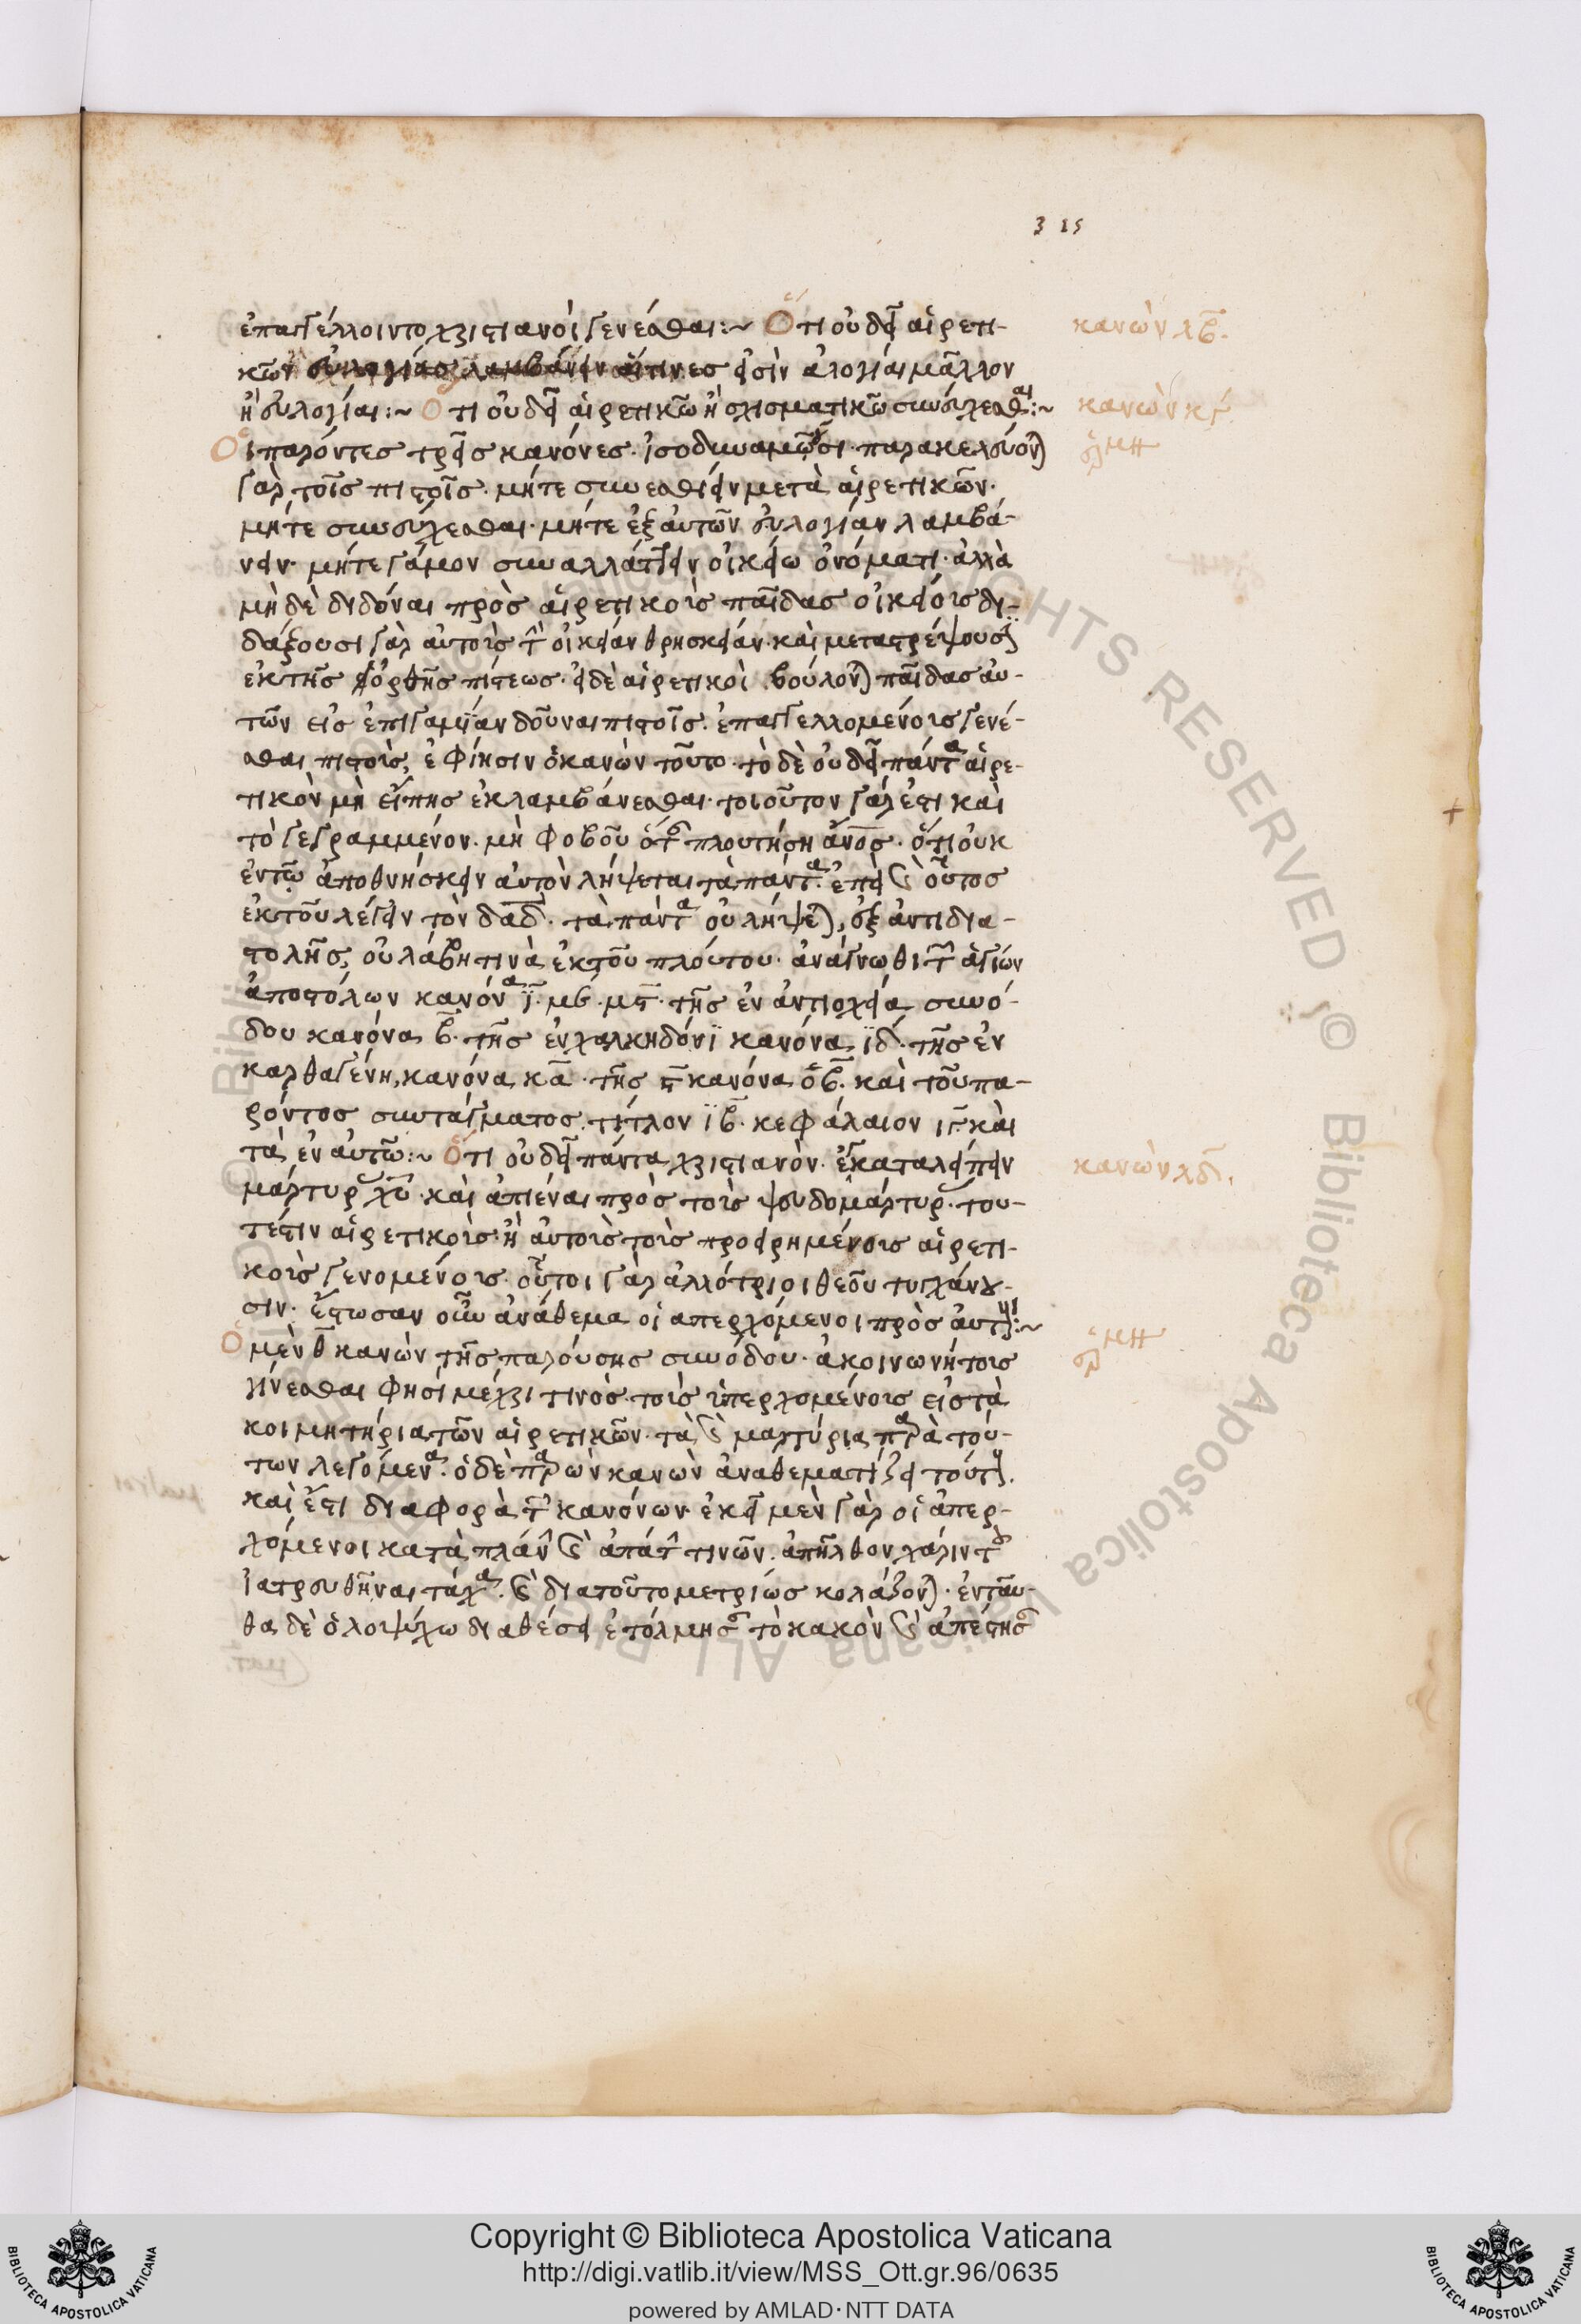 315
ἐπαγγέλλοιντο χριστιανοὶ γενέσθαι:~ Ὅτι οὐ δεῖ αἱρετι- κανὼν λβ.
κῶν εὐλογίας λαμβάνειν αἵτινες εἰσὶν ἀλογίαι μᾶλλον
ἢ εὐλογίαι:~ Ὅτι οὐ δεῖ αἱρετικῶ ἢ σχισματικῶ συνεύχεσθαι:~ κανὼν
Οἱ παρόντες τρεῖς κανόνες. ἰσοδυναμοῦσι. παρακελεύον)
γὰρ τοῖς πιστοῖς. μήτε συνεσθίειν μετὰ αἱρετικῶν.
μήτε συνεύχεσθαι. μήτε ἐξ αὐτῶν εὐλογίαν λαμβά-
νειν. μήτε γάμον συναλλάττειν οἰκείω ὀνόματι. ἀλλὰ
μὴ δὲ διδόναι πρὸς αἱρετικοὺς παῖδας οἰκείους δι-
δάξουσι γὰρ αὐτοὺς τὴν οἰκείαν θρησκείαν. καὶ μεταστρέψουσιν
ἐκ τῆς ὀρθῆς πίστεως. εἰ δὲ αἱρετικοὶ βούλον) παῖδας αὐ-
τῶν εἰς ἐπιγαμίαν δοῦναι πιστοῖς. ἐπαγγελλομένοις γενέ-
σθαι πιστοὺς, ἐφίησιν ὁ κανὼν τοῦτο. τὸ δὲ οὐ δεῖ πάντα αἱρε-
τικὸν μὴ εἴπης ἐκλαμβάνεσθαι. τοιοῦτον γάρ ἐστι καὶ
τὸ γεγραμμένον. μὴ φοβοῦ ὅταν πλουτήση ἄνος. ὅτι οὐκ
ἐν τῶ ἀποθνήσκειν αὐτὸν λήψεται τὰ πάντα. ἐπεὶ καὶ οὗτος
ἐκ τοῦ λέγειν τὸν δαδ. τὰ πάντα οὐ λήψε), ἐξ ἀντιδια-
στολῆς, οὐ λάβη τινὰ ἐκ τοῦ πλούτου. ἀνάγνωθι τῶν ἁγίων
ἀποστόλων κανόνα ϊ. με. μς. τῆς ἐν ἀντιοχεία συνό-
δου κανόνα β. τῆς ἐν χαλκηδόνϊ κανόνα ϊδ. τῆς ἐν
καρθαγένη, κανόνα κα. τῆς ς κανόνα οβ. καὶ τοῦ πα-
ρόντος συντάγματος τίτλον ϊβ. κεφάλαιον ιγ καὶ
τὰ ἐν αὐτῶ:~ Ὅτι οὐ δεῖ πάντα χριστιανὸν. ἐγκαταλείπειν κανὼν λδ.
μάρτυρας χυ. καὶ ἀπιέναι πρὸς τοὺς ψευδομάρτυρας. του-
τέστιν αἱρετικοὺς. ἢ αὐτοὺς τοὺς προειρημένους αἱρετι-
κοὺς γενομένους. οὗτοι γὰρ ἀλλότριοι θεοῦ τυγχάνου-
σιν. ἔστωσαν οὖν ἀνάθεμα οἱ ἀπερχόμενοι πρὸς αὐτούς:~
Ὁ μὲν θ κανὼν τῆς παρούσης συνόδου. ἀκοινωνήτους
γίνεσθαι φησὶ μέχρι τινός. τοὺς ὑπερχομένους εἰς τὰ
κοιμητήρια τῶν αἱρετικῶν. τὰ καὶ μαρτύρια παρὰ τού-
των λεγόμενα. ὁ δὲ παρὼν κανὼν ἀναθεματίζει τούτους.
καὶ ἔστι διαφορὰ τῶν κανόνων. ἐκεῖ μὲν γὰρ οἱ ἀπερ-
χόμενοι κατὰ πλάνην καὶ ἀπάτην τινῶν. ἀπῆλθον χάριν τοῦ
ἰατρευθῆναι τάχα. καὶ διατοῦτο μετρίως κολάζον). ἐνταῦ-
θα δὲ ὁλοψύχω διαθέσει ἐτόλμησαν τὸ κακὸν καὶ ἀπέστησαν